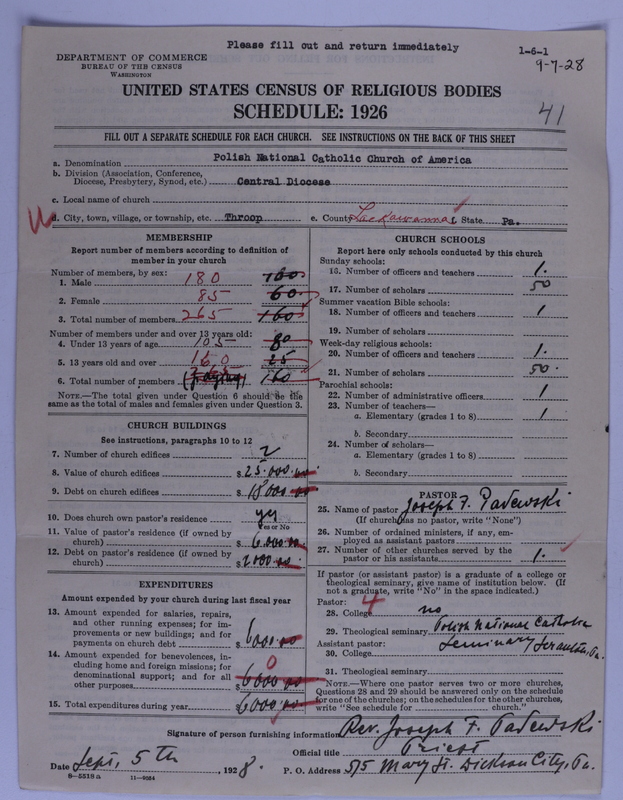 Please fill out and return immediately
1-6-1
9-7-28
DEPARTMENT OF COMMERCE
BUREAU OF THE CENSUS
WASHINGTON
UNITED STATES CENSUS OF RELIGIOUS BODIES
SCHEDULE: 1926
41
FILL OUT A SEPARATE SCHEDULE FOR EACH CHURCH. SEE INSTRUCTIONS ON THE BACK OF THIS SHEET
a. Denomination Polish National Catholic Church of America
b. Division (Association, Conference,
Diocese, Presbytery, Synod, etc.) Central Diocese
c. Local name of church
d. City, town, village, or township, etc. Throop e. County Lackawanna f. State Pa.
MEMBERSHIP
Report number of members according to definition of
member in your church
Number of members, by sex:
1. Male 180 100
2. Female 85 60
3. Total number of members 265 160
Number of members under and over 13 years old:
4. Under 13 years of age 105 80
5. 13 years old and over 160 25
6. Total number of members (paying) 160
NOTE.—The total given under Question 6 should be the
same as the total of males and females given under Question 3.
CHURCH BUILDINGS
See instructions, paragraphs 10 to 12
7. Number of church edifices 2
8. Value of church edifices $25.000.00
9. Debt on church edifices $18000.00
10. Does church own pastor's residence yes
Yes or No
11. Value of pastor's residence (if owned by
church) $6.000.00
12. Debt on pastor's residence (if owned by
church) $2000.00
EXPENDITURES
Amount expended by your church during last fiscal year
13. Amount expended for salaries, repairs,
and other running expenses; for im-
provements or new buildings; and for
payments on church debt $6000.00
14. Amount expended for benevolences, in-
cluding home and foreign missions; for
denominational support; and for all
other purposes $6000.00 0
15. Total expenditures during year $6000.00
CHURCH SCHOOLS
Report here only schools conducted by this church
Sunday schools:
16. Number of officers and teachers 1.
17. Number of scholars 50
Summer vacation Bible schools:
18. Number of officers and teachers 1
19. Number of scholars
Week-day religious schools:
20. Number of officers and teachers 1.
21. Number of scholars 50.
Parochial schools:
22. Number of administrative officers 1
23. Number of teachers—
a. Elementary (grades 1 to 8) 1
b. Secondary
24. Number of scholars—
a. Elementary (grades 1 to 8)
b. Secondary
PASTOR
25. Name of pastor Joseph F. Padewski
(If church has no pastor, write "None")
26. Number of ordained ministers, if any, em-
ployed as assistant pastors
27. Number of other churches served by the
pastor or his assistants 1.
If pastor (or assistant pastor) is a graduate of a college or
theological seminary, give name of institution below. (If
not a graduate, write "No" in the space indicated.)
Pastor:
28. College no
29. Theological seminary Polish National Catholic
Assistant pastor: Seminary Scranton, Pa.
30. College
31. Theological seminary
NOTE.—Where one pastor serves two or more churches,
Questions 28 and 29 should be answered only on the schedule
for one of the churches; on the schedules for the other churches,
write "See schedule for church."
Signature of person furnishing information Rev. Joseph F. Padewski
Official title Priest
Date Sept. 5th, 1928. P. O. Address 515 Mary St. Dickson City, Pa.
8—5518a 11—9664